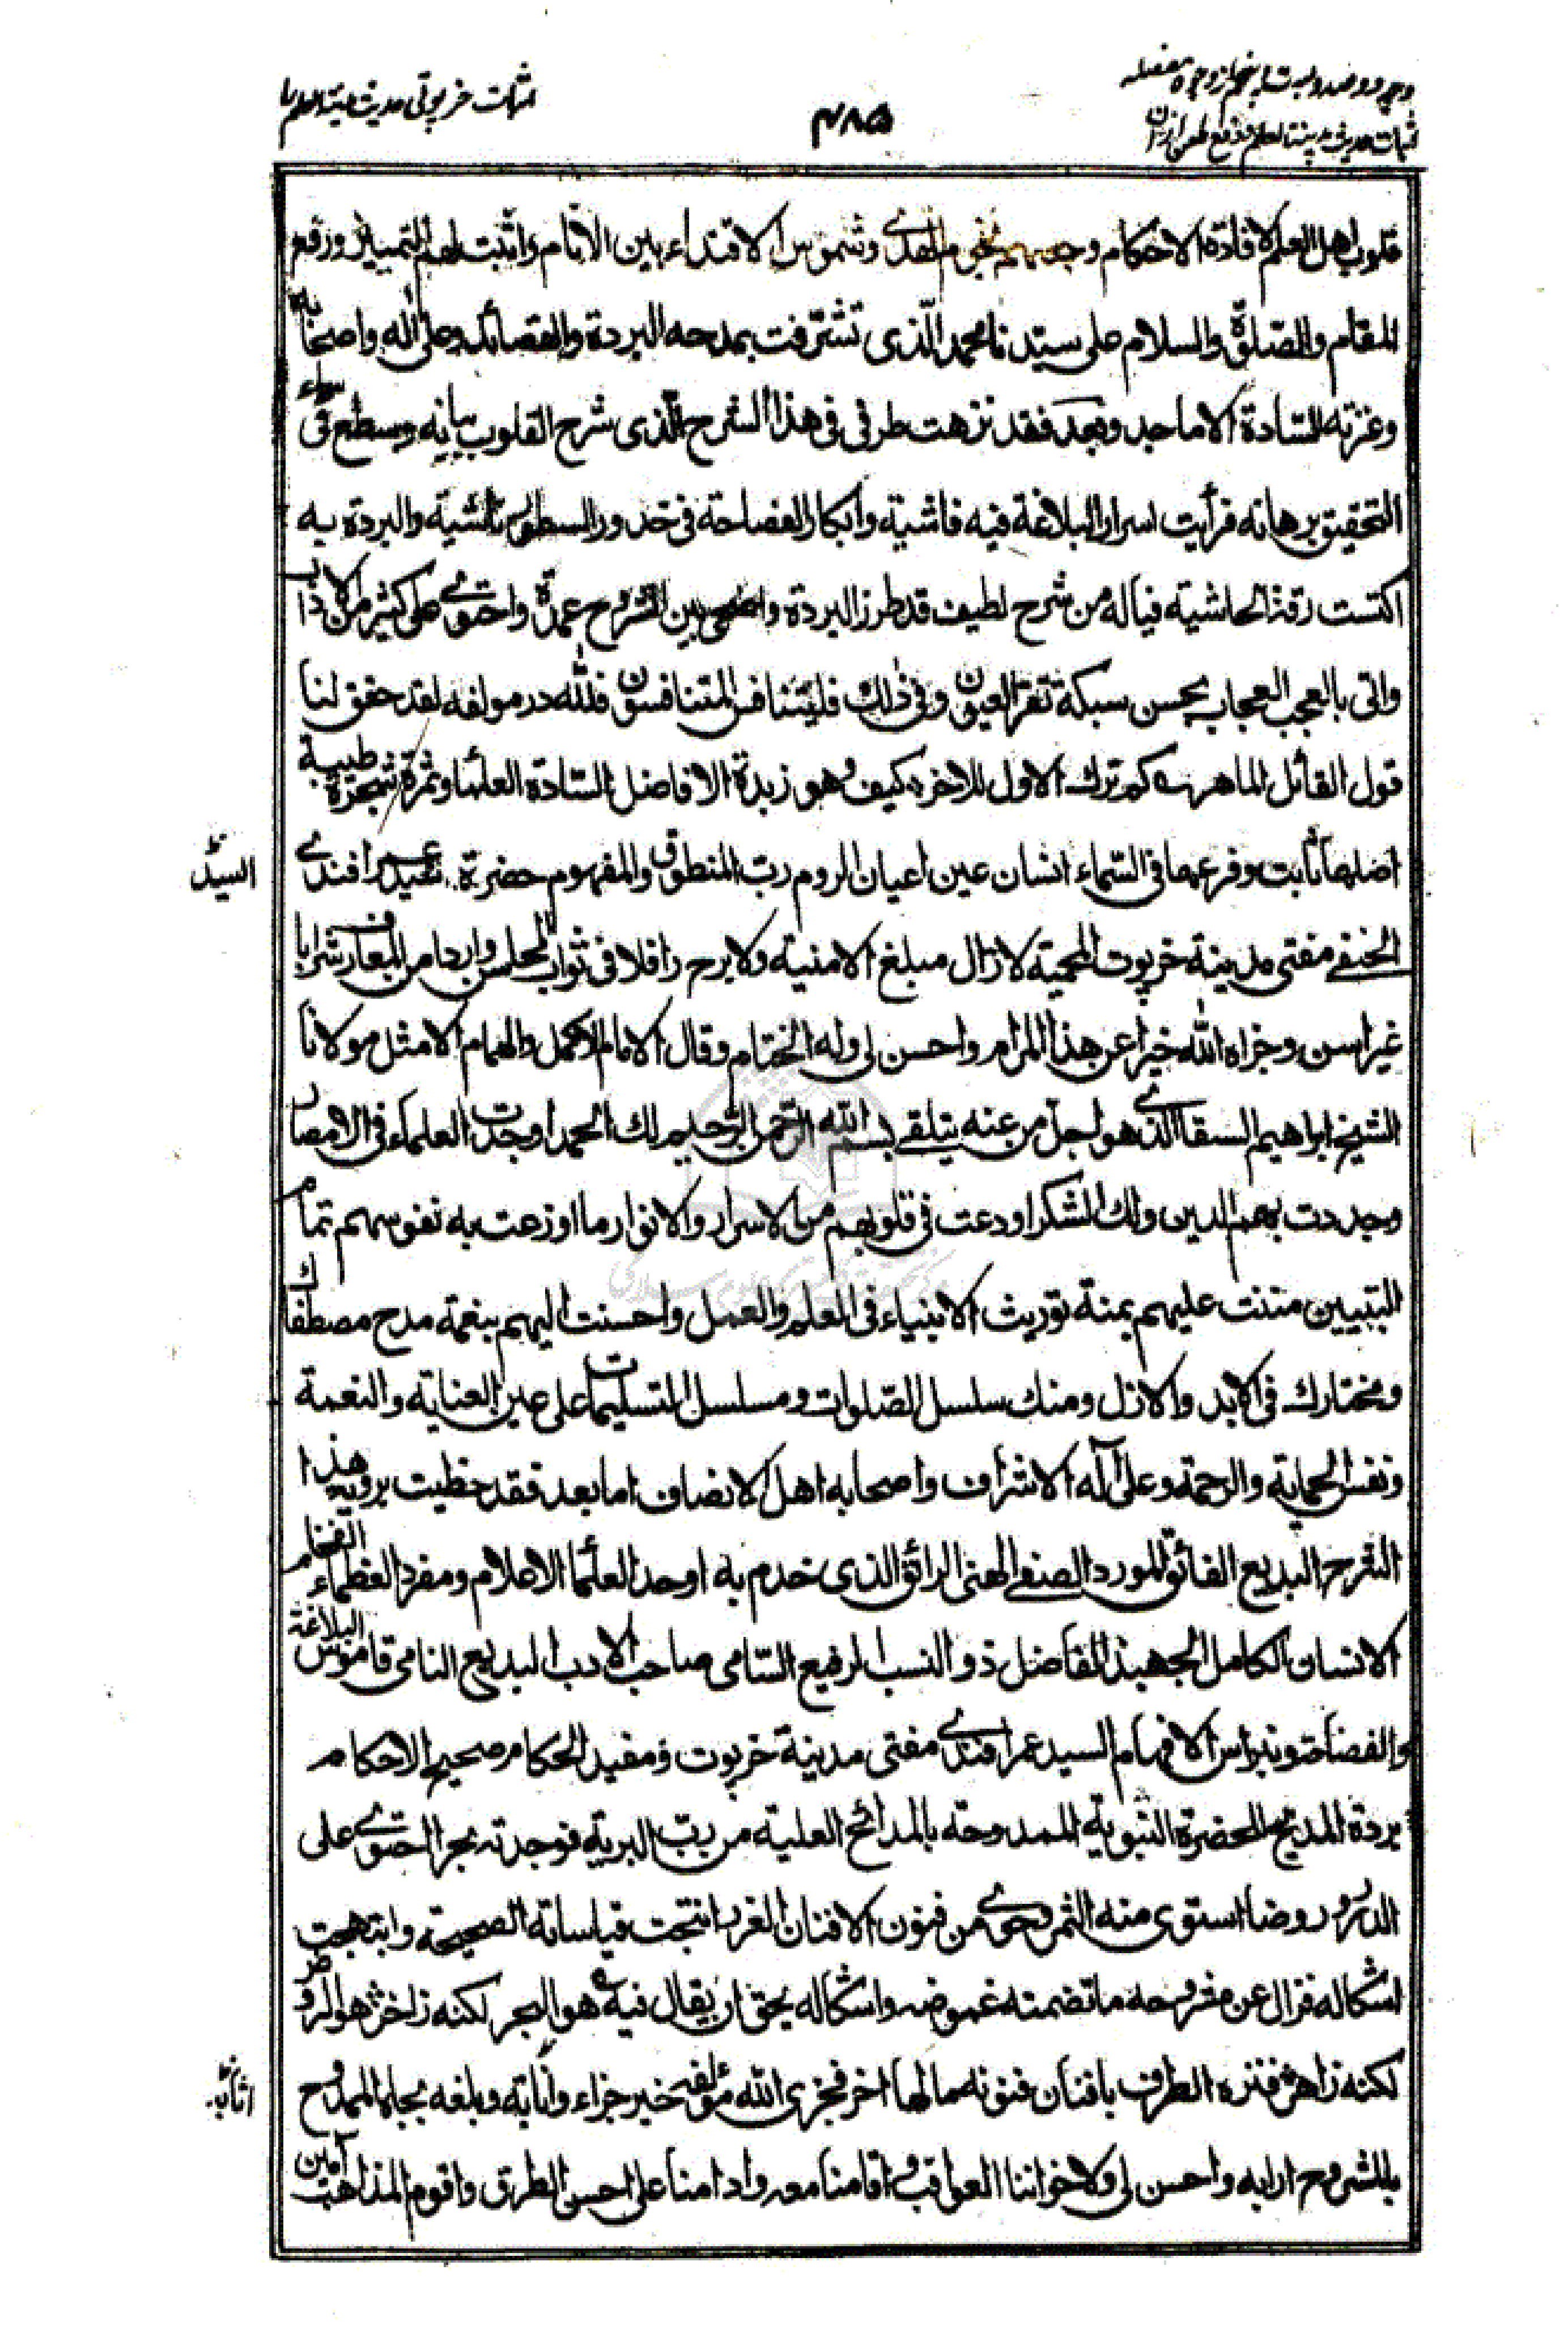 وجه دو صد و بست و پنجم از وجوه مفصله
اثبات حدیث مدینة العلم و دفع طعن از ان
۴۸۵
اثبات خرپوتی حدیث مدینة العلم را
قلوب اهل العلم لافادة الاحکام وجعلهم نجوم الهدی وشموس الاقتداء بین الانام واثبت لهم التمییز ورفع
المقام والصلوة والسلام علی سیدنا محمد الذی تشرفت بمدحه البردة والقصائد وعلی آله واصحابه
وعترته السادة الاماجد وبعد فقد نزهت طرفی فی هذا الشرح الذی شرح القلوب بیانه وسطع فی سماء
التحقیق برهانه فرأیت اسرار البلاغة فیه فاشیة وابکار الفصاحة فی خدور السطور ناشیة والبردة به
اکتست رقة الحاشیة فیاله من شرح لطیف قد طرز البردة واضحی بین الشروح عمدة واحتوی علی کثیر من الاداب
واتی بالعجب العجاب بحسن سبکه تقر العیون وفی ذلك فلیتنافس المتنافسون فلله در مولفه لقد حقق لنا
قول القائل الماهر کم ترك الاول للاخر کیف وهو زبدة الافاضل السادة العلماء وثمرة شجرة طیبة
اصلها ثابت وفرعها فی السماء انسان عین اعیان الروم رب المنطوق والمفهوم حضرة عمر افندی
السید
الحنفی مفتی مدینة خرپوت المحمیة لازال مبلغ الامنیة ولا برح رافلا فی ثواب المحاسن واردا من المعارف شرابا
غیر اسن وجزاه الله خیرا عن هذا المرام واحسن لی وله الختام وقال الامام الاکمل والهمام الامثل مولانا
الشیخ ابراهیم السقا الذی هو اجل من عنه یتلقی بسم الله الرحمن الرحیم لك الحمد اوجدت العلماء فی الامصار
وجددت بهم الدین ولك الشکر اودعت فی قلوبهم من الاسرار والانوار ما اوزعت به نفوسهم تمام
التبیین مننت علیهم بمنة توریث الانبیاء فی العلم والعمل واحسنت الیهم بنعمة مدح مصطفاك
ومختارك فی الابد والازل ومنك سلسل الصلوات ومسلسل التسلیمات علی عین العنایة والنعمة
ونفس الحمایة والرحمة وعلی آله الاشراف واصحابه اهل الانصاف اما بعد فقد حظیت برویة هذا
الشرح البدیع الفائق المورد الصفی الهنی الرائق الذی خدم به اوحد العلماء الاعلام ومفرد العظماء الفخام
الانسان الکامل الجهبذ الفاضل ذو النسب الرفیع السامی صاحب الادب البدیع النامی قاموس البلاغة
والفصاحة ونبراس الافهام السید عمر افندی مفتی مدینة خرپوت ومفید الحکام صحیح الاحکام
بردة المدیح للحضرة النبویة الممدوحة بالمدائح العلیة من رب البریة فوجدته بحرا احتوی علی
الدرر وروضا استوی منه الثمر وحوی من فنون الافنان الغرر انتجت قیاساته الصحیحة وابتهجت
اشکاله فزال عن مشروحه ما تضمنته غموضه واشکاله یحق ان یقال فیه ع هو البحر لکنه زاخر هو الروض
لکنه زاهر فنزه الطرف بافنان فنونه مالها اخر فجزی الله مؤلفه خیر جزاء واثابه وبلغه بجاه الممدوح
اثابه
بالمشروح ارابه واحسن لی ولاخواننا العواقب واقامنا معه وادامنا علی احسن الطرق واقوم المذاهب آمین